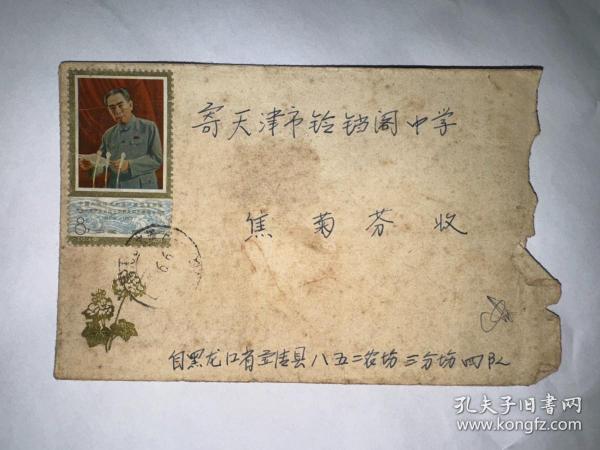 寄天津市铃铛阁中学
焦菊芬 收
自黑龙口省宝清县八五二农场三分场四队
孔夫子旧书网
www.kongfz.com